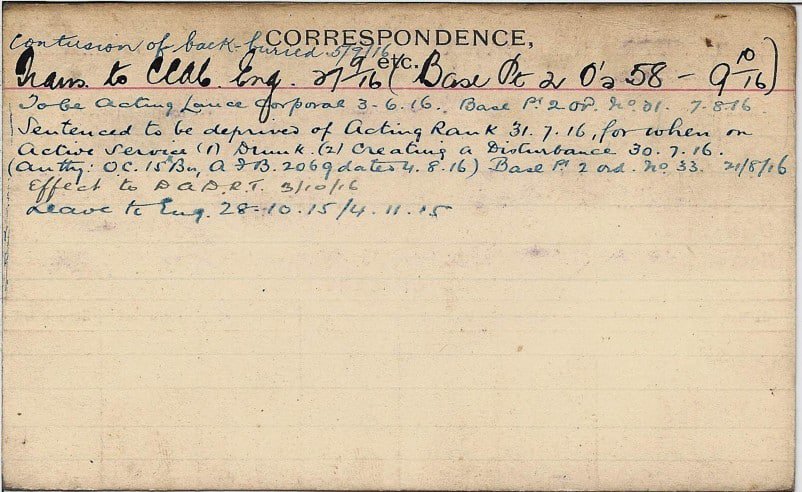 CORRESPONDENCE,
etc.
Contusion of back-buried 5/9/16
Trans. to CCAC. Eng. 27 9/16 (Base Pt 2 O's 58 - 9 10/16)
To be Acting Lance Corporal 3-6-16. Base Pt 2 Od. No 31. 7-8-16.
Sentenced to be deprived of Acting Rank 31.7.16, for when on
Active Service (1) Drunk. (2) Creating a Disturbance 30.7.16.
(Authy: O.C. 15 Bn, A & B. 2069 dated 4.8.16) Base Pt 2 ord. No 33. 21/8/16
Effect to D.A.D.R.T. 3/10/16
Leave to Eng. 28-10.15/4.11.15